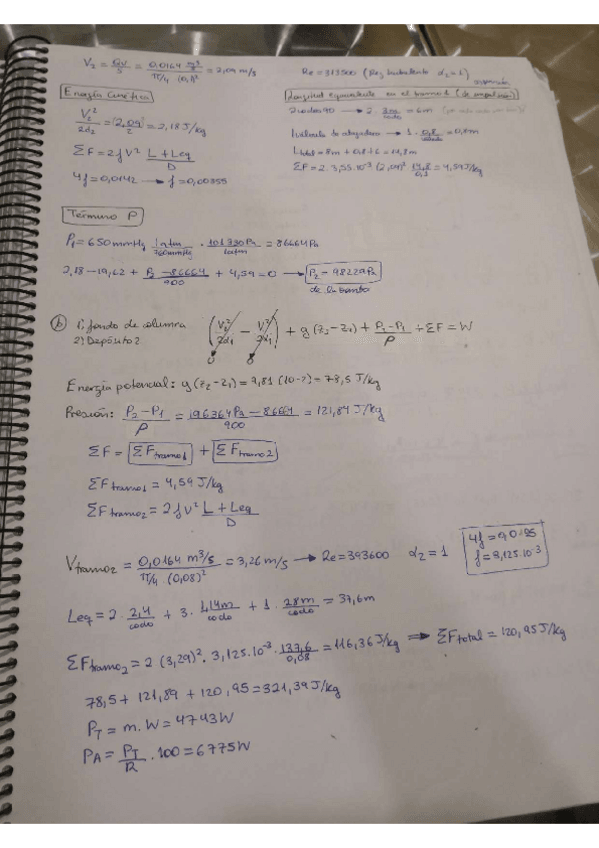 V₂ = Qv/S = 0,0164 m³/s / π/4 · (0,1)² = 2,09 m/s
Re = 313500 (Re, turbulento α₂ = 1)
Energía Cinética
V₂²/2α₂ = (2,09)²/2 = 2,18 J/kg
ΣF = 2fV² L + Leq / D
4f = 0,0142 → f = 0,00355
Longitud equivalente en el tramo 1 (de aspiración)
2 codos 90 → 2 · 3m/codo = 6m
1 válvula de → 1 · 0,8/ = 0,8m
Ltotal = 8m + 0,8 + 6 = 14,8m
ΣF = 2 · 3,55·10⁻³ (2,09)² 14,8/0,1 = 4,59 J/kg
Término P
P₁ = 650 mmHg 1atm/760mmHg · 101330 Pa/1atm = 86664 Pa
2,18 - 19,62 + P₂ - 86664 / 900 + 4,59 = 0 → P₂ = 98229 Pa
de la bomba
b) 1) fondo de columna
2) Depósito 2
(V₂²/2α₁ - V₁²/2α₁) + g(z₂-z₁) + P₂-P₁/ρ + ΣF = W
0 0
Energía potencial: g(z₂-z₁) = 9,81 (10-2) = 78,5 J/kg
Presión: P₂-P₁/ρ = 196364 Pa - 86664 / 900 = 121,84 J/kg
ΣF = ΣF tramo1 + ΣF tramo2
ΣF tramo1 = 4,59 J/kg
ΣF tramo2 = 2fV² L + Leq / D
V tramo2 = 0,0164 m³/s / π/4 · (0,08)² = 3,26 m/s → Re = 393600 α₂ = 1
4f = 0,0125
f = 3,125·10⁻³
Leq = 2 · 2,4/codo + 3 · 1,4m/codo + 1 · 28m/codo = 37,6m
ΣF tramo2 = 2 (3,29)² · 3,125·10⁻³ · 137,6/0,08 = 116,36 J/kg ⇒ ΣF total = 120,95 J/kg
78,5 + 121,89 + 120,95 = 321,39 J/kg
P_T = m · W = 4743 W
P_A = P_T/R · 100 = 6775 W